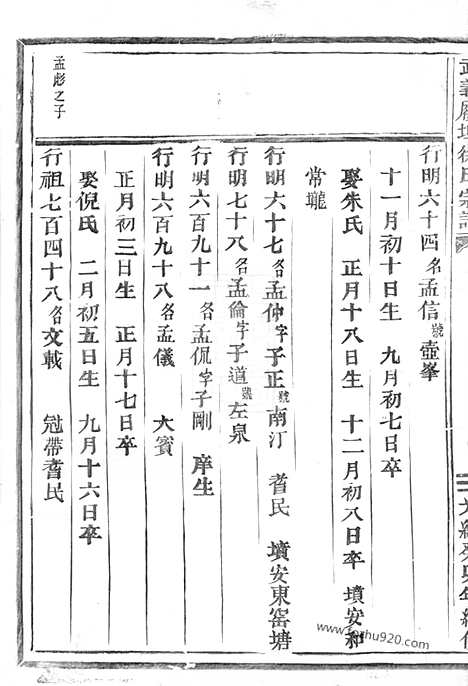 行明六十四名孟信號壺峯
十一月初十日生 九月初七日卒
娶朱氏 正月十八日生 十二月初八日卒 墳安和
常隴
行明六十七名孟仲字子正號南汀 耆民 墳安東窑塘
行明七十八名孟倫字子道號左泉
行明六百九十一名孟侃字子剛 庠生
行明六百九十八名孟儀 大賓
正月初三日生 正月十七日卒
娶倪氏 二月初五日生 九月十六日卒
孟彪之子
行祖七百四十八名文載 冠帶耆民